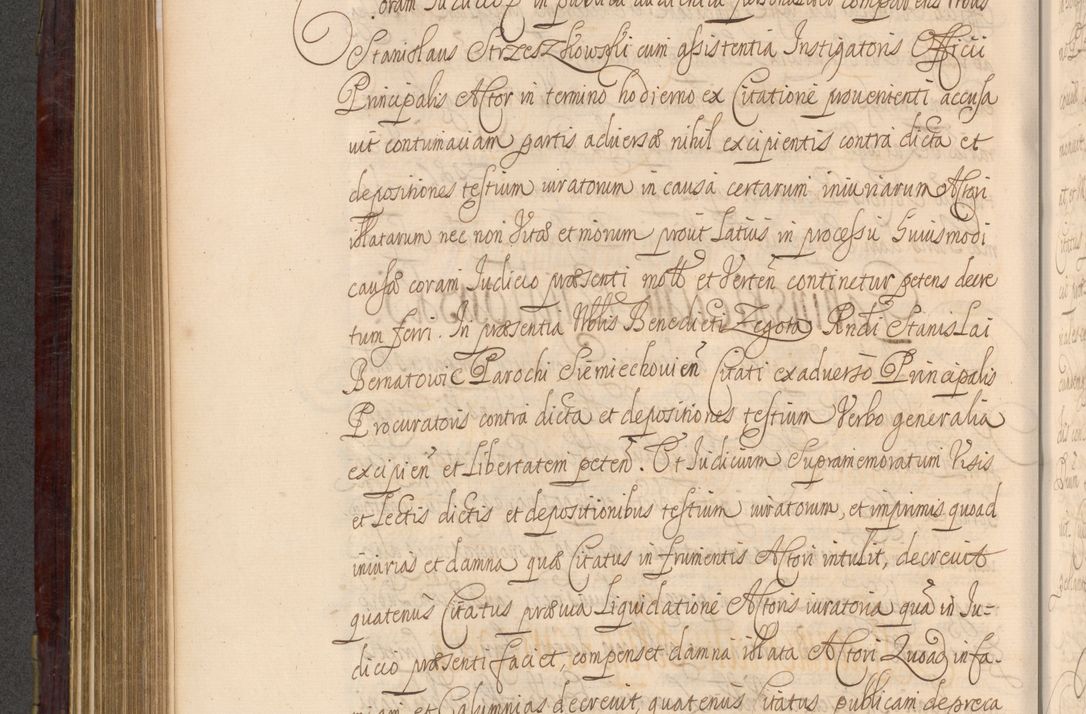 oram Judicio in publica audientia personaliter comparens Nobis
Stanislaus Strzeszkowski cum assistentia Instigatoris Officii
Principalis Actor in termino hodierno ex Citatione provenienti accusa
vit contumaciam partis adversæ nihil excipientis contra dicta et
depositiones testium iuratorum in causa certarum iniuriarum Actori
illatarum nec non Vitæ et morum prout Latius in processu huiusmodi
causæ coram Judicio præsenti mott et Verten̄ continetur petens decre
tum ferri. In præsentia Nobis Benedicti Zegota Rndi Stanislai
Bernatowic Parochi Siemiechovien̄ Citati ex adverso Principalis
Procuratoris contra dicta et depositiones testium Verbo generalia
excipien̄ et Libertatem peten̄. Et Judicium Supramemoratum Visis
et Lectis dictis et depositionibus testium iuratorum, et imprimis quoad
iniurias et damna quæ Citatus in frumentis Actori intulit, decrevit
quatenus Citatus prævia Liquidatione Actoris iuratoria quā in Ju=
dicio præsenti faciet, compenset damna illata Actori Quoad infa-
miam et Calumnias decrevit, quatenus Citatus publicam depreca